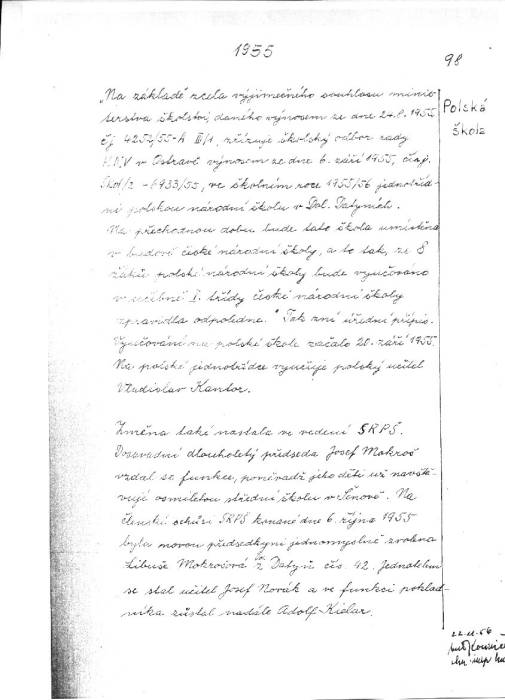 1955
98
„Na základě zcela výjimečného souhlasu minis-
terstva školství, daného výnosem ze dne 24.8.1955
čj 4252/55-A III/1, zřizuje školský odbor rady
KNV v Ostravě výnosem ze dne 6. září 1955, čnj.
Škol/2 - 6933/55, ve školním roce 1955/56 jednotříd-
ní polskou národní školu v Dol. Datyních.
Na přechodnou dobu bude tato škola umístěna
v budově české národní školy, a to tak, že 8
žáků polské národní školy bude vyučováno
v učebně I. třídy české národní školy
zpravidla odpoledne." Tak zní úřední přípis.
Vyučování na polské škole začalo 20. září 1955.
Na polské jednotřídce vyučuje polský učitel
Vladislav Kantor.
Polská
škola
Změna také nastala ve vedení SRPŠ.
Dosavadní dlouholetý předseda Josef Mokroš
vzdal se funkce, poněvadž jeho děti už navště-
vují osmiletou střední školu v Šenově. Na
členské schůzi SRPŠ konané dne 6. října 1955
byla novou předsedkyní jednomyslně zvolena
Libuše Mokrošová z Datyň čís. 42. Jednatelem
se stal učitel Josef Novák a ve funkci poklad-
níka zůstal nadále Adolf Kielar.
22.11.56